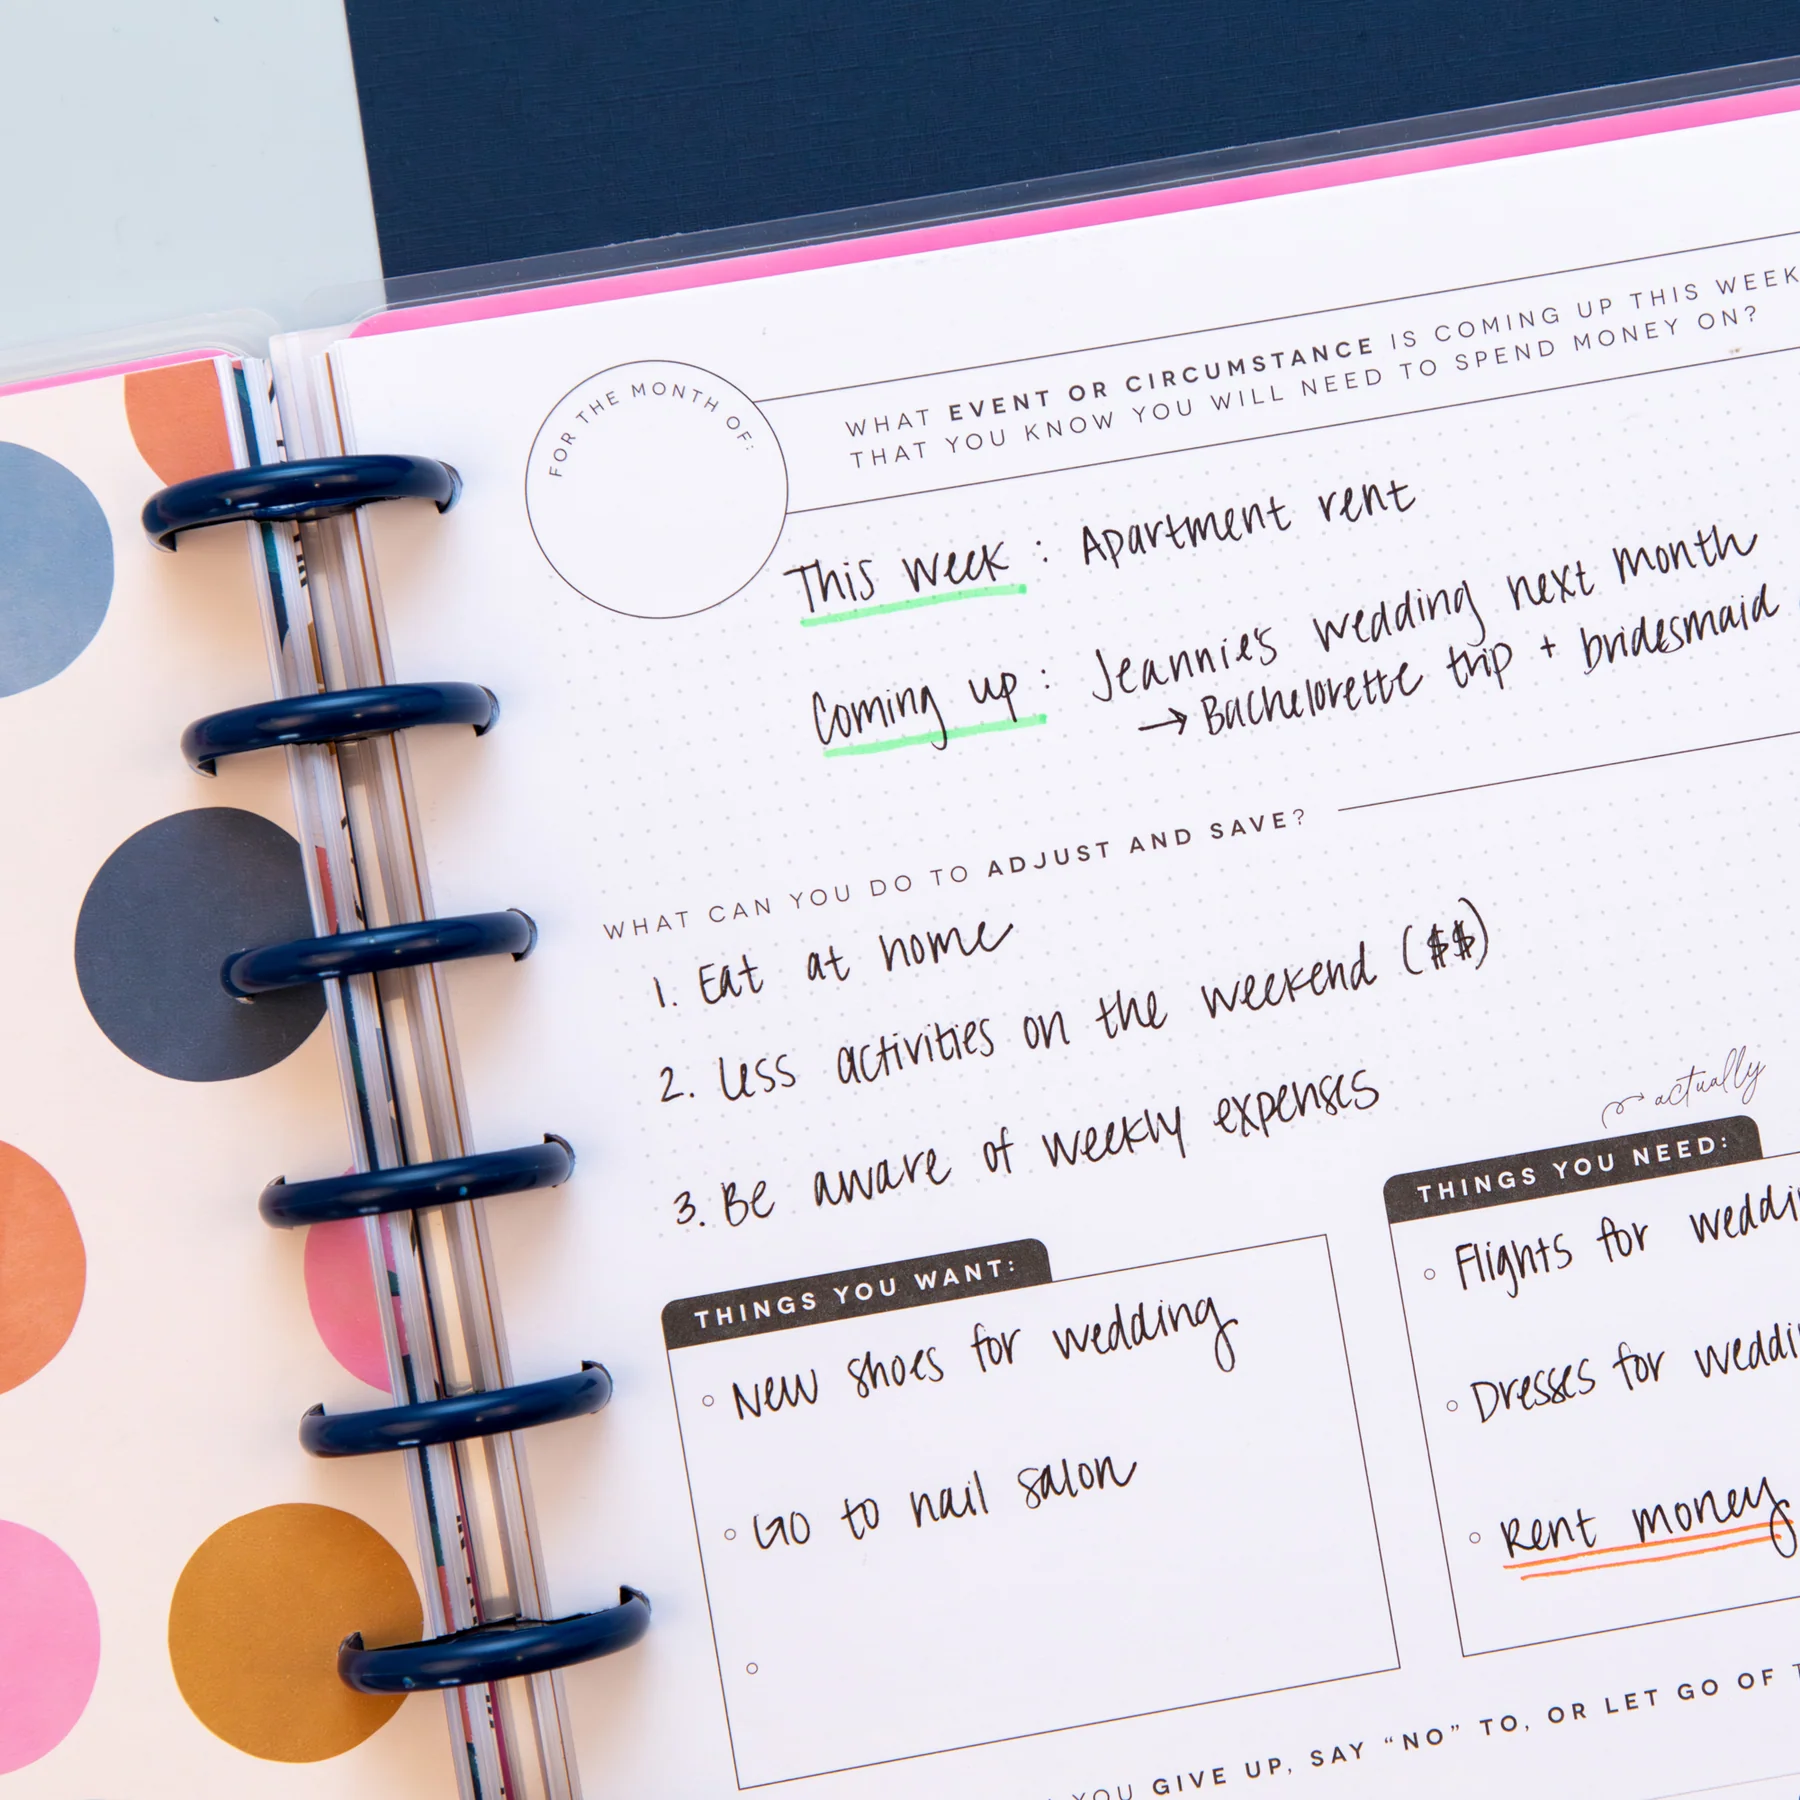 FOR THE MONTH OF:
WHAT EVENT OR CIRCUMSTANCE IS COMING UP THIS WEEK
THAT YOU KNOW YOU WILL NEED TO SPEND MONEY ON?
This week : Apartment rent
Coming up : Jeannie's wedding next month
→ Bachelorette trip + bridesmaid
WHAT CAN YOU DO TO ADJUST AND SAVE?
1. Eat at home
2. Less activities on the weekend ($$)
3. Be aware of weekly expenses
THINGS YOU WANT:
New shoes for wedding
Go to nail salon
actually
THINGS YOU NEED:
Flights for
Dresses for
Rent money
YOU GIVE UP, SAY “NO” TO, OR LET GO OF